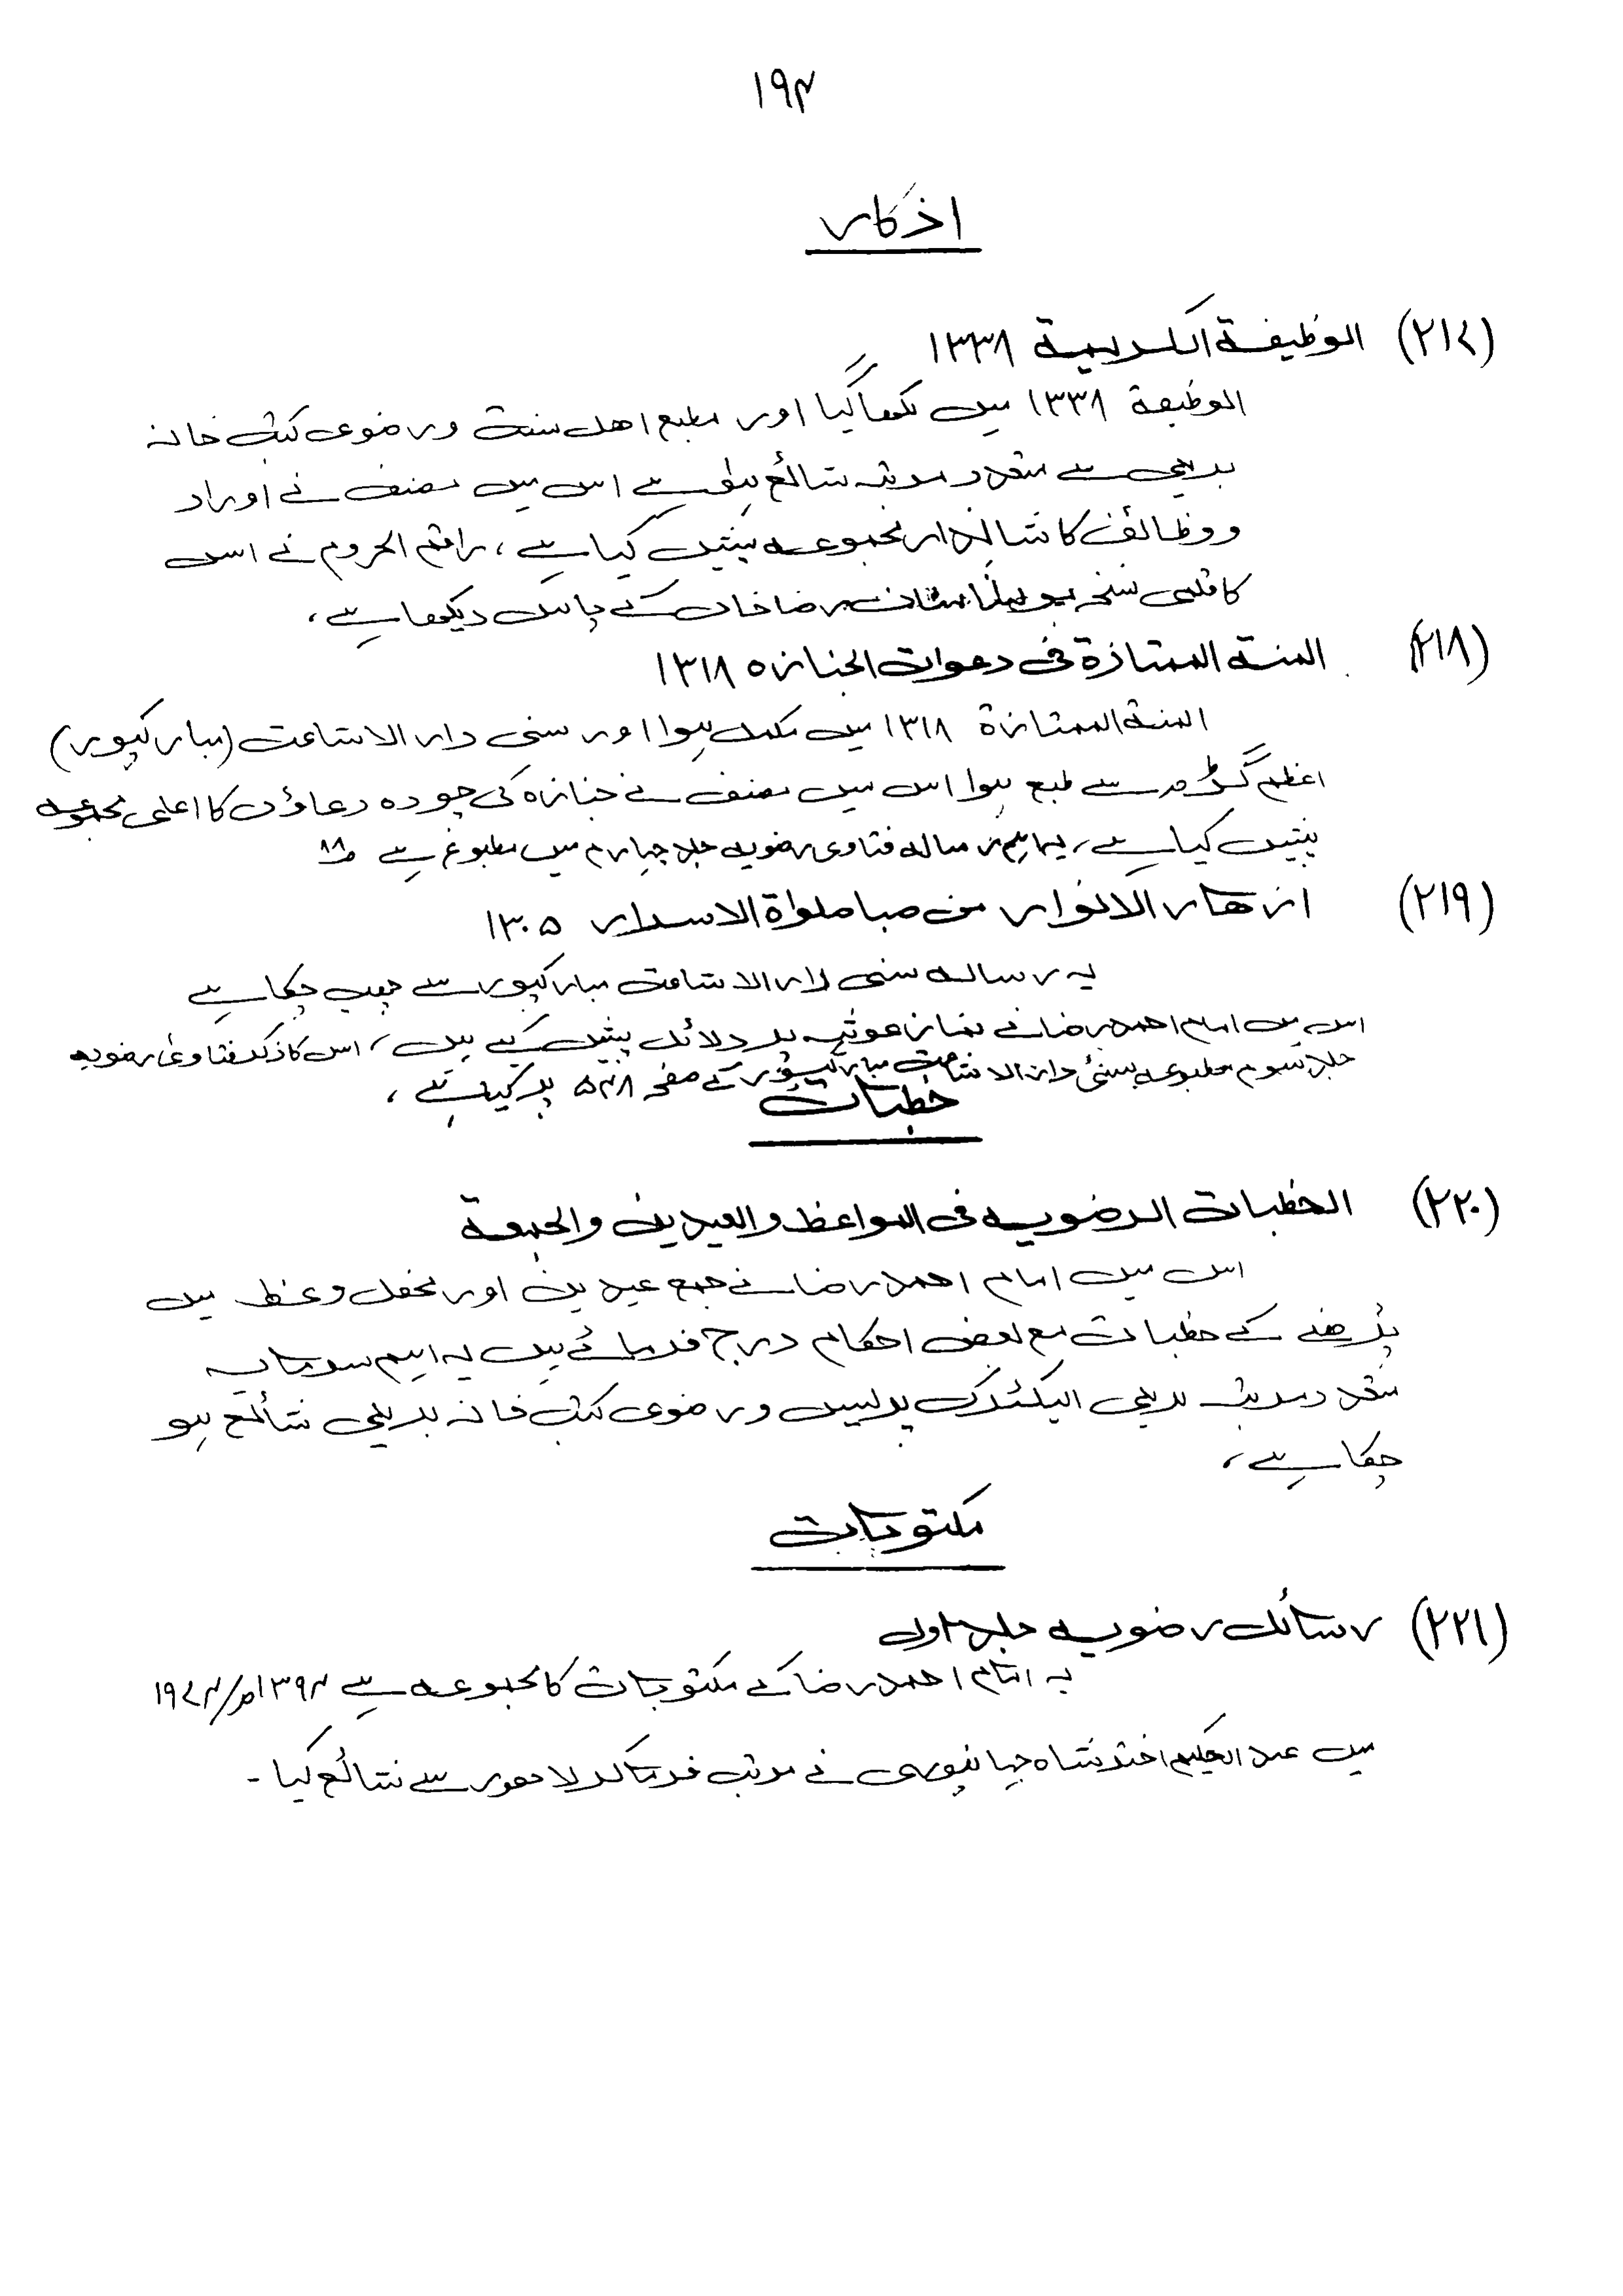 ۱۹۴
اذکار
(۲۱۷) الوظیفۃ الکریمیۃ ۱۳۳۸
الوظیفۃ ۱۳۳۸ میں لکھا گیا اور مطبع اھل سنت و رضوی کتب خانہ
بریلی سے متعدد مرتبہ شائع ہوا ہے اس میں مصنف نے اوراد
و وظائف کا شاندار مجموعہ پیش کیا ہے، راقم الحروم نے اس
کا قلمی نسخہ رضا خاں کے پاس دیکھا ہے،
(۲۱۸) المنۃ الممتازۃ فی دعوات الجنازہ ۱۳۱۸
المنۃ الممتازۃ ۱۳۱۸ میں مکمل ہوا اور سنی دار الاشاعت (مبارکپور)
اعظم گڑھ سے طبع ہوا اس میں مصنف نے جنازہ کی چودہ دعاؤں کا اعلی مجموعہ
پیش کیا ہے، یہ اہم رسالہ فتاوی رضویہ جلد چہارم میں مطبوع ہے
(۲۱۹) ازھار الانوار من صبا صلواۃ الاسرار ۱۳۰۵
یہ رسالہ سنی دار الاشاعت مبارکپور سے چھپ چکا ہے
اس میں امام احمد رضا نے نماز غوثیہ پر دلائل پیش کیے ہیں، اس کا ذکر فتاویٰ رضویہ
جلد سوم مطبوعہ سنی دار الاشاعت مبارکپور کے صفحہ ۵۴۸ پر کیا ہے،
خطبات
(۲۲۰) الخطبات الرضویہ فی المواعظ والعیدین والجمعۃ
اس میں امام احمد رضا نے جمع عیدین اور محفل وعظ میں
پڑھنے کے خطبات مع بعض احکام درج فرمائے ہیں یہ اہم سرمایہ
متعدد مرتبہ بریلی الیکٹرک پریس و رضوی کتب خانہ بریلی شائع ہو
چکا ہے،
مکتوبات
(۲۲۱) رسائل رضویہ جلد اول
یہ امام احمد رضا کے مکتوبات کا مجموعہ ہے ۱۳۹۴ھ/۱۹۷۴
میں عبد الحکیم اختر شاہ جہانپوری نے مرتب فرما کر لاھور سے شائع کیا۔